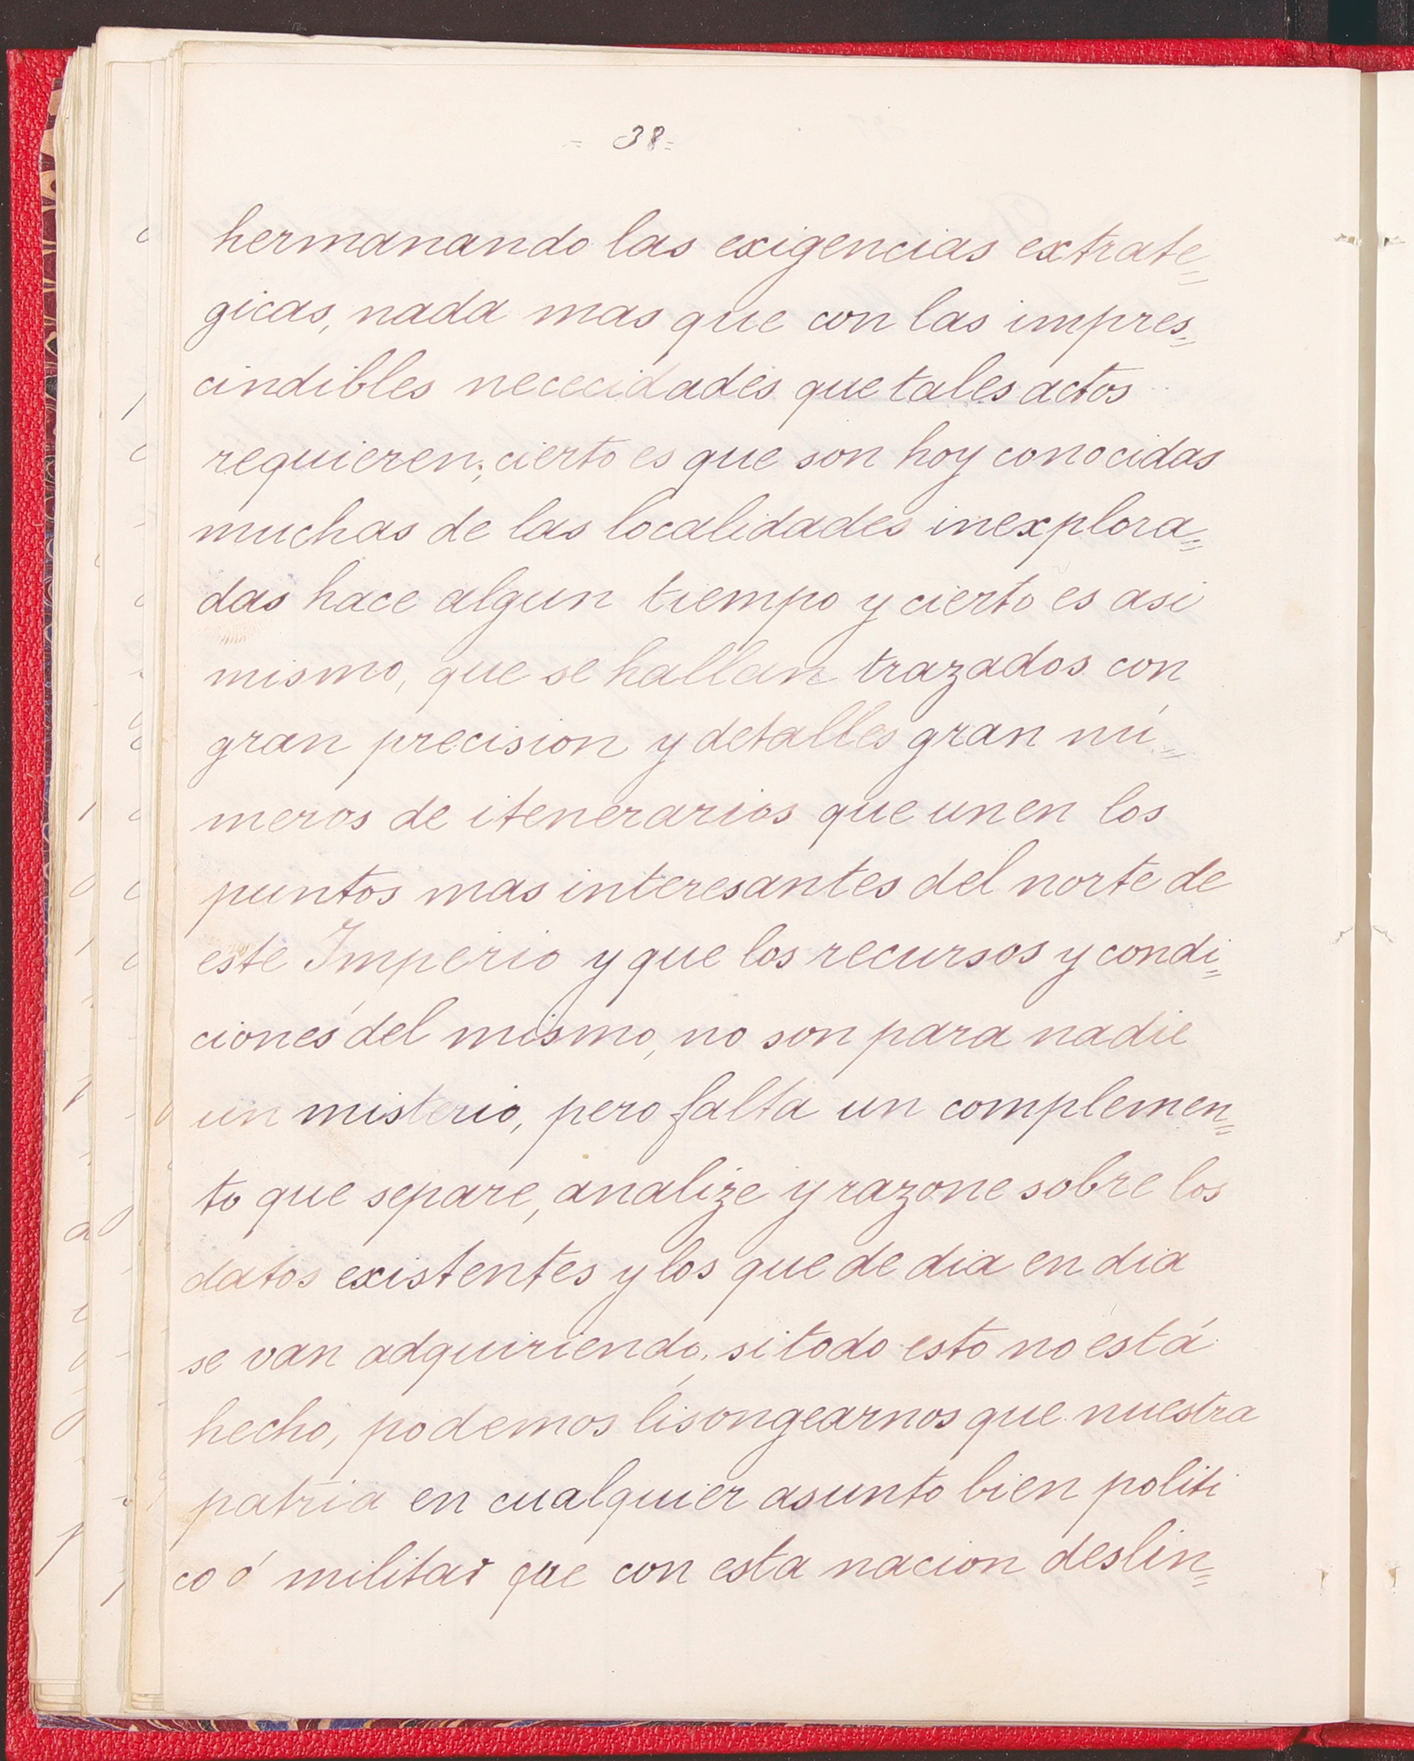 = 38=
hermanando las exigencias extrate=
gicas, nada mas que con las impres=
cindibles nececidades que tales actos
requieren; cierto es que son hoy conocidas
muchas de las localidades inexplora=
das hace algun tiempo y cierto es asi
mismo, que se hallan trazados con
gran precision y detalles gran nú=
meros de itenerarios que unen los
puntos mas interesantes del norte de
este Imperio y que los recursos y condi=
ciones del mismo, no son para nadie
un misterio, pero falta un complemen=
to que separe, analize y razone sobre los
datos existentes y los que de dia en dia
se van adquiriendo, si todo esto no está
hecho, podemos lisongearnos que nuestra
patria en cualquier asunto bien politi
co ó militar que con esta nacion deslin=